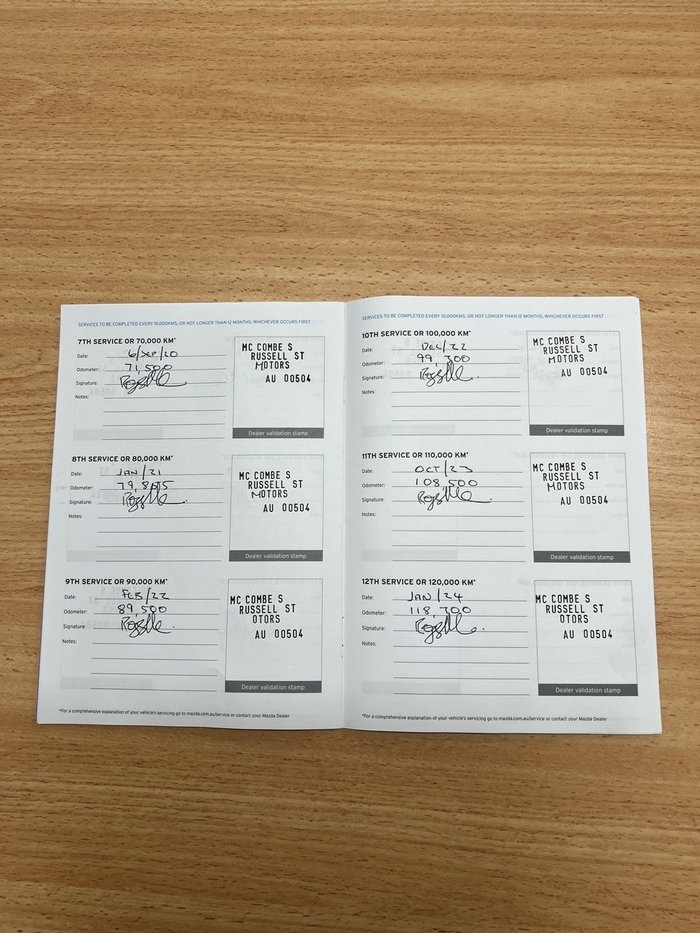 SERVICES TO BE COMPLETED EVERY 10,000KMS, OR NOT LONGER THAN 12 MONTHS, WHICHEVER OCCURS FIRST
7TH SERVICE OR 70,000 KM*
Date: 6/SEP/20
Odometer: 71,500
Signature:
Notes:
MC COMBE S
RUSSELL ST
MOTORS
AU 00504
Dealer validation stamp
8TH SERVICE OR 80,000 KM*
Date: JAN/21
Odometer: 79,8
Signature:
Notes:
MC COMBE S
RUSSELL ST
MOTORS
AU 00504
Dealer validation stamp
9TH SERVICE OR 90,000 KM*
Date: FEB/22
Odometer: 89,500
Signature:
Notes:
MC COMBE S
RUSSELL ST
OTORS
AU 00504
Dealer validation stamp
*For a comprehensive explanation of your vehicle's servicing go to mazda.com.au/service or contact your Mazda Dealer
SERVICES TO BE COMPLETED EVERY 10,000KMS, OR NOT LONGER THAN 12 MONTHS, WHICHEVER OCCURS FIRST
10TH SERVICE OR 100,000 KM*
Date: DEC/22
Odometer: 99,300
Signature:
Notes:
MC COMBE S
RUSSELL ST
MOTORS
AU 00504
Dealer validation stamp
11TH SERVICE OR 110,000 KM*
Date: OCT/23
Odometer: 108,500
Signature:
Notes:
MC COMBE S
RUSSELL ST
MOTORS
AU 00504
Dealer validation stamp
12TH SERVICE OR 120,000 KM*
Date: JAN/24
Odometer: 118,700
Signature:
Notes:
MC COMBE S
RUSSELL ST
OTORS
AU 00504
Dealer validation stamp
*For a comprehensive explanation of your vehicle's servicing go to mazda.com.au/service or contact your Mazda Dealer